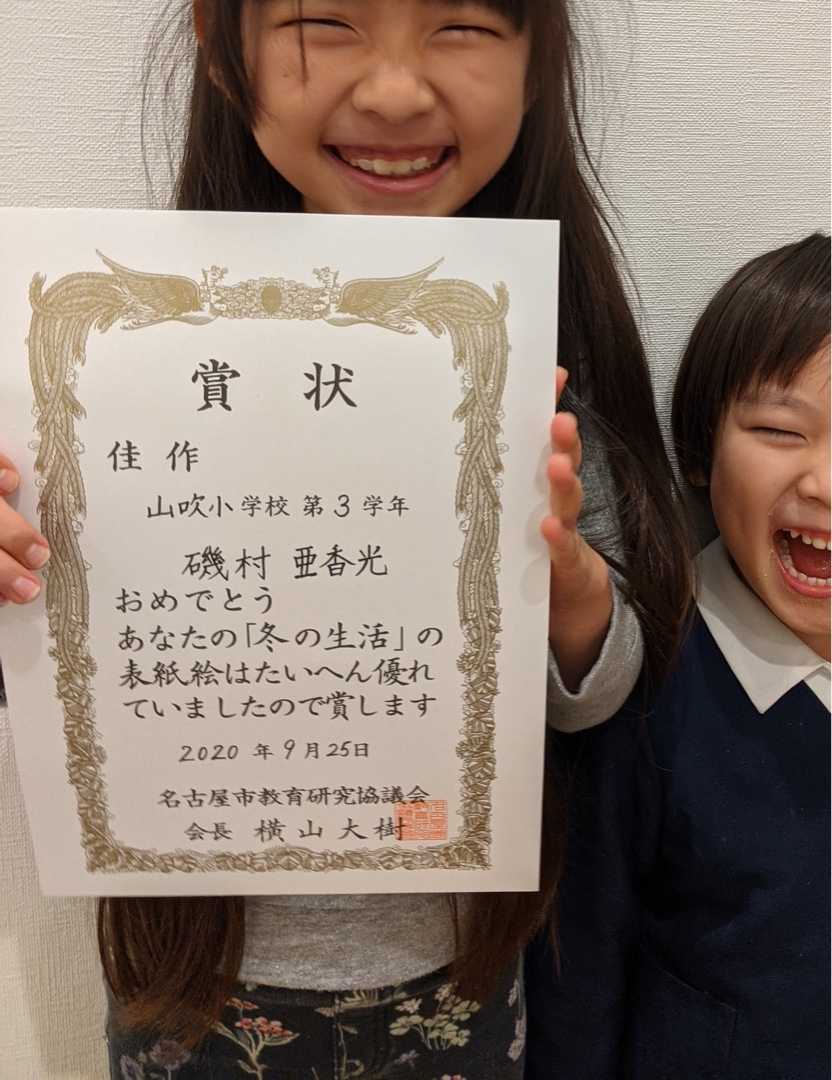 賞状
佳作
山吹小学校 第3学年
磯村 亜香光
おめでとう
あなたの「冬の生活」の
表紙絵はたいへん優れ
ていましたので賞します
2020年9月25日
名古屋市教育研究協議会
会長 横山大樹